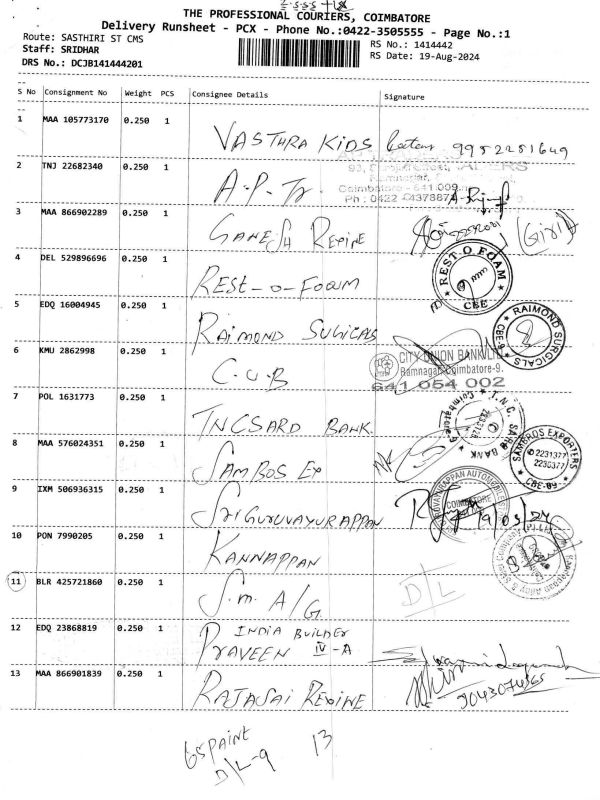 THE PROFESSIONAL COURIERS, COIMBATORE
Delivery Runsheet - PCX - Phone No.:0422-3505555 - Page No.:1
Route: SASTHIRI ST CMS
RS No.: 1414442
Staff: SRIDHAR
RS Date: 19-Aug-2024
DRS No.: DCJB141444201
S No Consignment No Weight PCS Consignee Details Signature
1 MAA 105773170 0.250 1 VASTHRA KIDS 9952251649
2 TNJ 22682340 0.250 1 A.P. Tr.
Coimbatore - 641 009
3 MAA 866902289 0.250 1 GANESH REXINE (Giri)
4 DEL 529896696 0.250 1 REST-O-FOAM
REST O FOAM CBE
5 EDQ 16004945 0.250 1 RAIMOND SUGICALS
RAIMOND SURGICALS CBE-9
6 KMU 2862998 0.250 1 C.U.B
CITY UNION BANK LTD
Ramnagar, Coimbatore-9.
641 054 002
7 POL 1631773 0.250 1 TNCSARD BANK
8 MAA 576024351 0.250 1 SAMBOS EX
SAMBROS EXPORTERS 2231377 2230377 CBE-09
9 IXM 506936315 0.250 1 SRIGURUVAYURAPPAN
COIMBATORE
10 PON 7990205 0.250 1 KANNAPPAN
11 BLR 425721860 0.250 1 S.M. A/G. D/L
12 EDQ 23868819 0.250 1 INDIA BUILDER
PRAVEEN IV-A
13 MAA 866901839 0.250 1 RAJASAI REXINE
GSPAINT 13
D/L-9